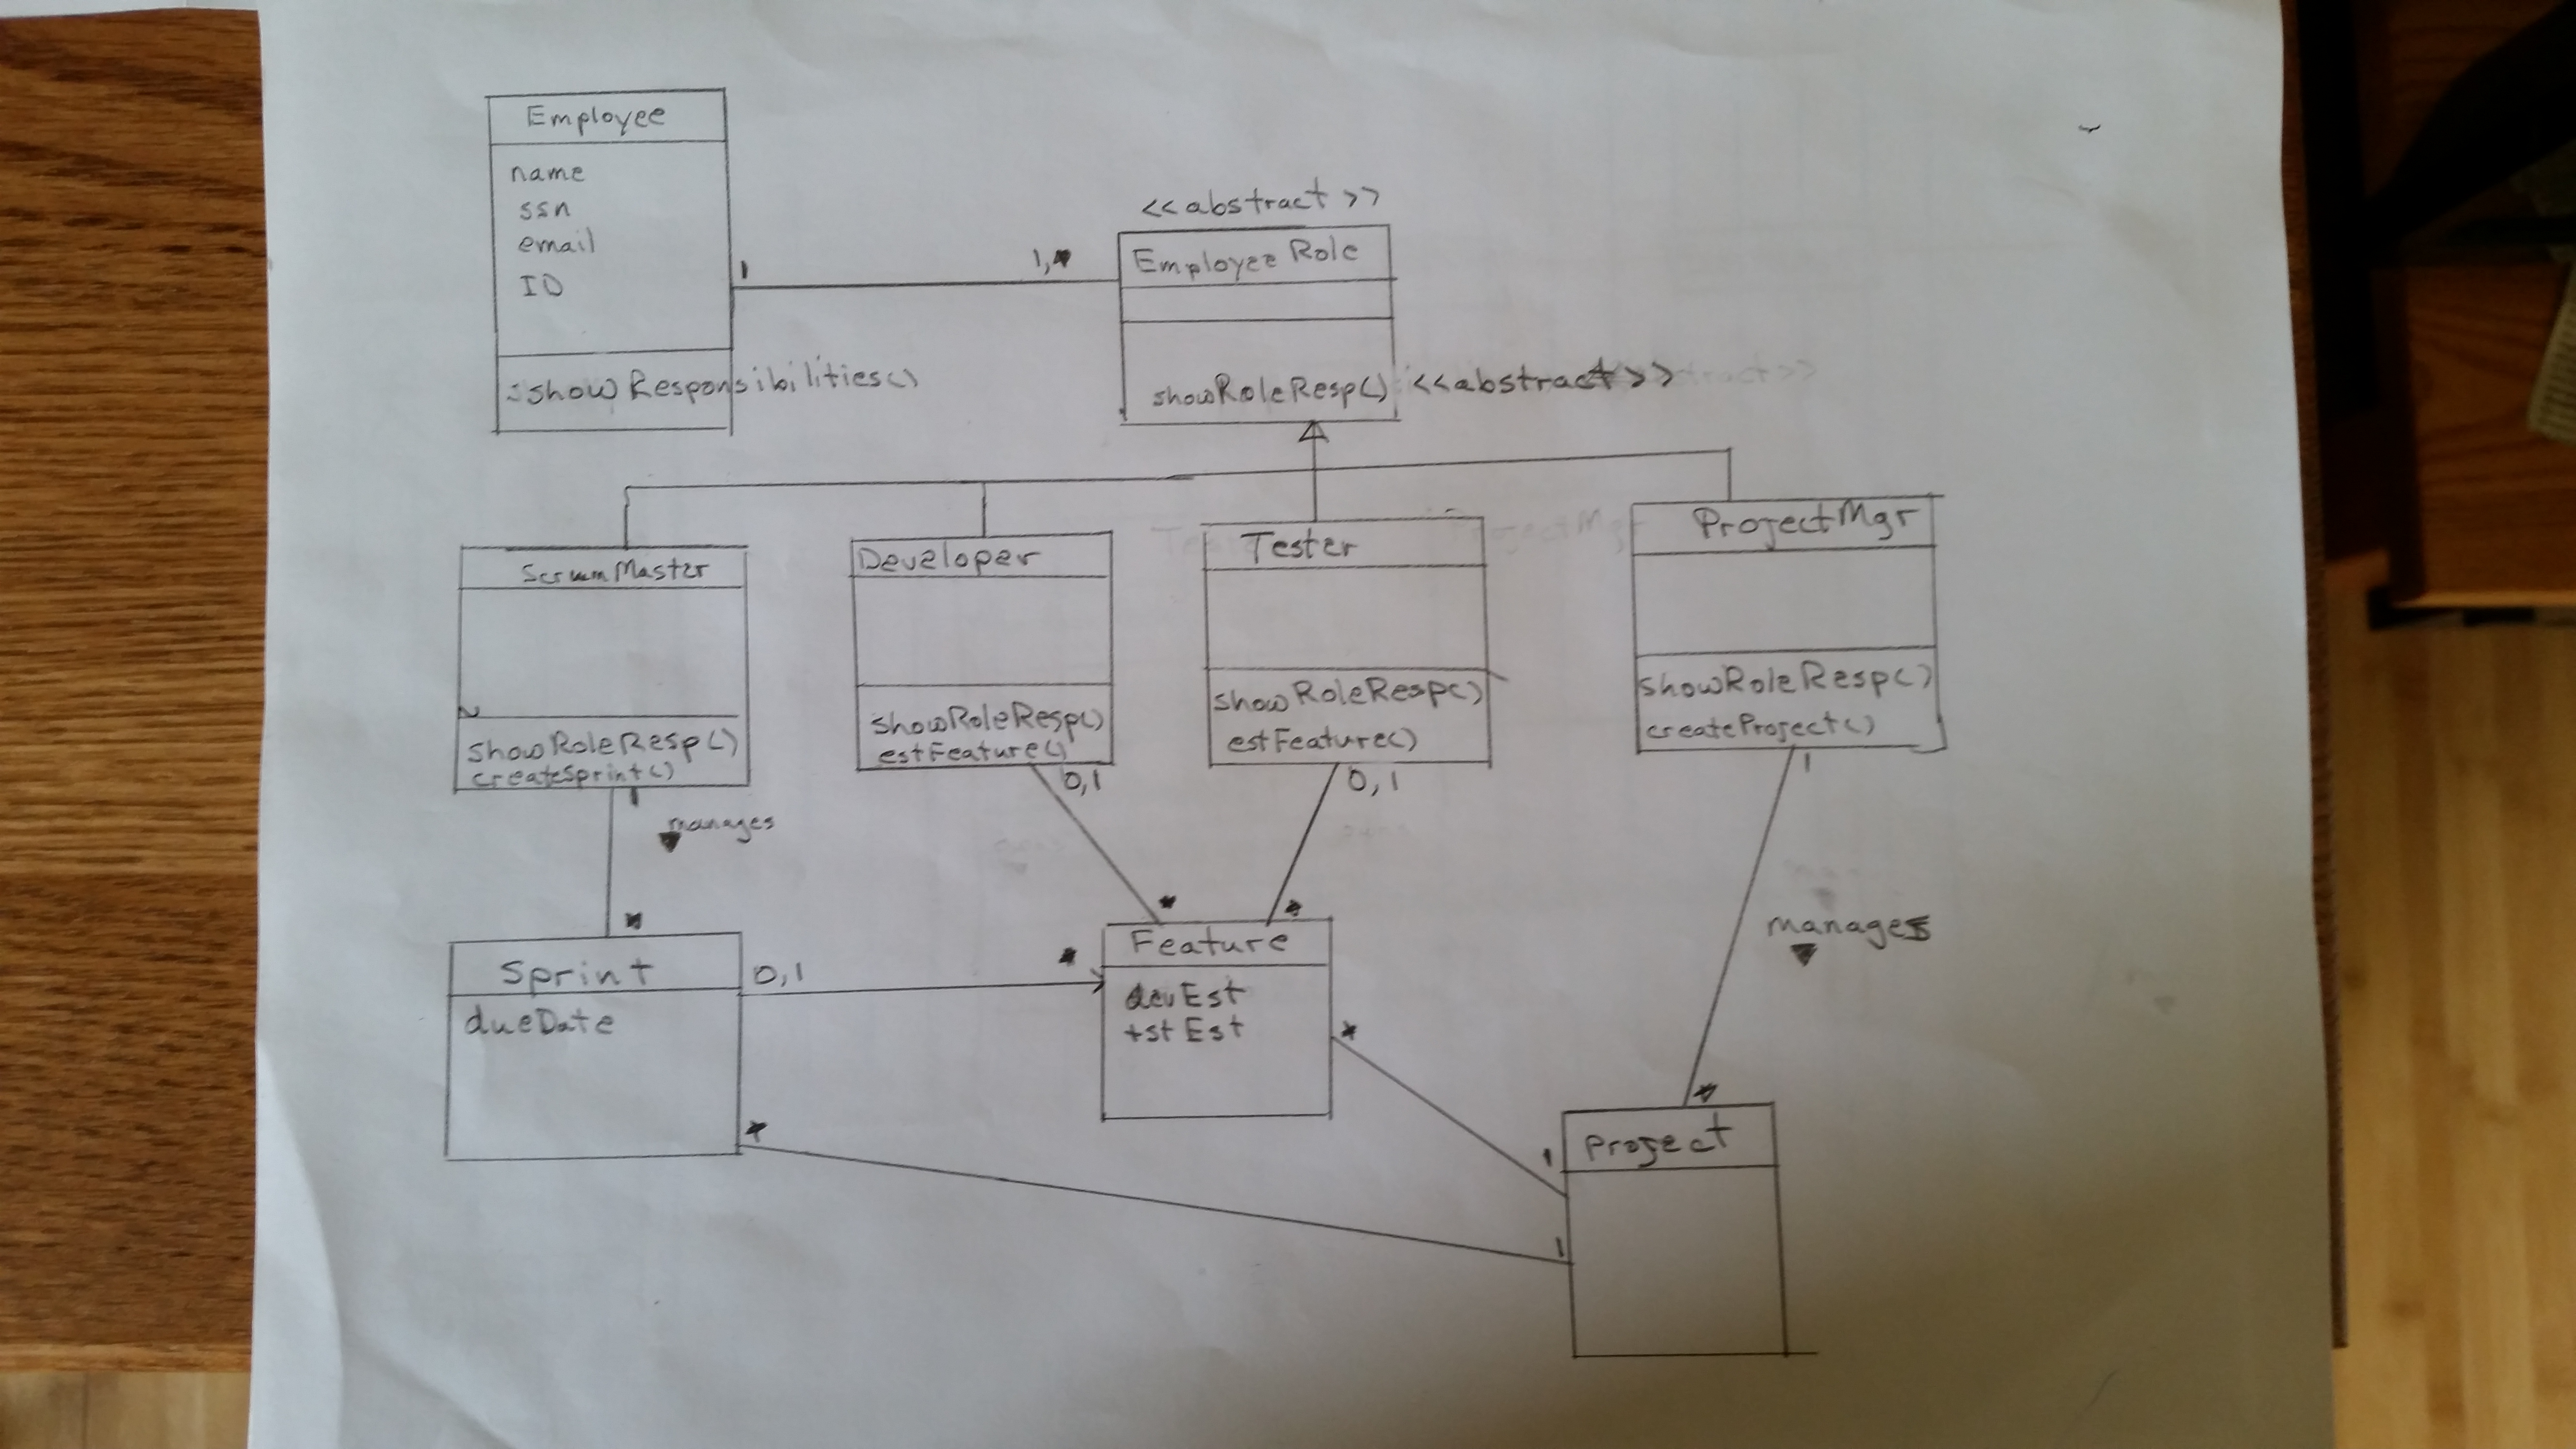 Employee
name
ssn
email
ID
showResponsibilities()
1
1,*
<<abstract>>
Employee Role
showRoleResp() <<abstract>>
ScrumMaster
showRoleResp()
createSprint()
Developer
showRoleResp()
estFeature()
Tester
showRoleResp()
estFeature()
ProjectMgr
showRoleResp()
createProject()
1
manages
*
0,1
*
0,1
*
1
manages
*
Sprint
dueDate
0,1
*
Feature
devEst
tstEst
*
1
*
1
Project